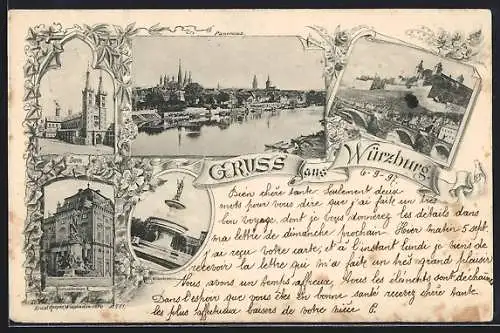 Panorama
Dom
GRUSS aus Würzburg
6-9-97
Bien chère tante Seulement deux
mots pour vous dire que j'ai fait un très
bon voyage, dont je vous donnerez les détails dans
ma lettre de dimanche prochain. Hier matin 5 sept.
j'ai reçu votre carte, et à l'instant lundi je viens de
recevoir la lettre qui m'a fait un très grand plaisir
Nous avons un temps affreux, tous les éléments sont dechain.
Dans l'espoir que vous êtes en bonne santé recevez chère tante
les plus affectueux baisers de votre nièce